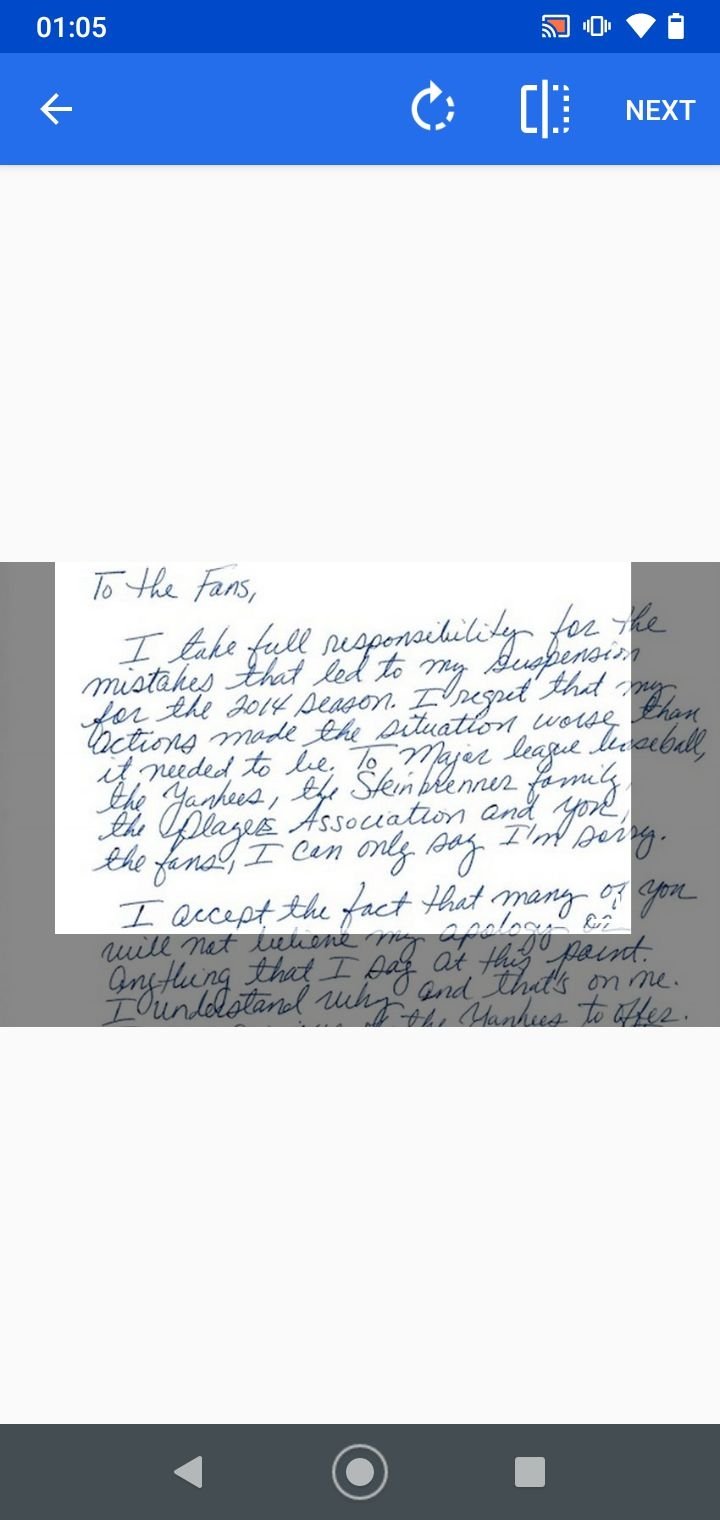 01:05
NEXT
To the Fans,
I take full responsibility for the
mistakes that led to my suspension
for the 2014 season. I regret that my
actions made the situation worse than
it needed to be. To Major league baseball,
the Yankees, the Steinbrenner family,
the Players Association and you,
the fans, I can only say I'm sorry.
I accept the fact that many of you
will not believe my apology or
anything that I say at this point.
I understand why and that's on me.
the Yankees to offer.